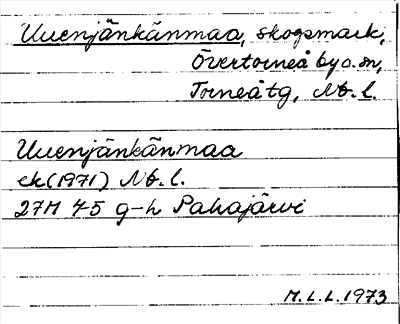 Uuenjänkänmaa, skogsmark,
Övertorneå by o. sn,
Torneåtg, Nb. l.
Uuenjänkänmaa
ek (1971) Nb. l.
27M 4-5 g-h Pahajärvi
M. L. L. 1973